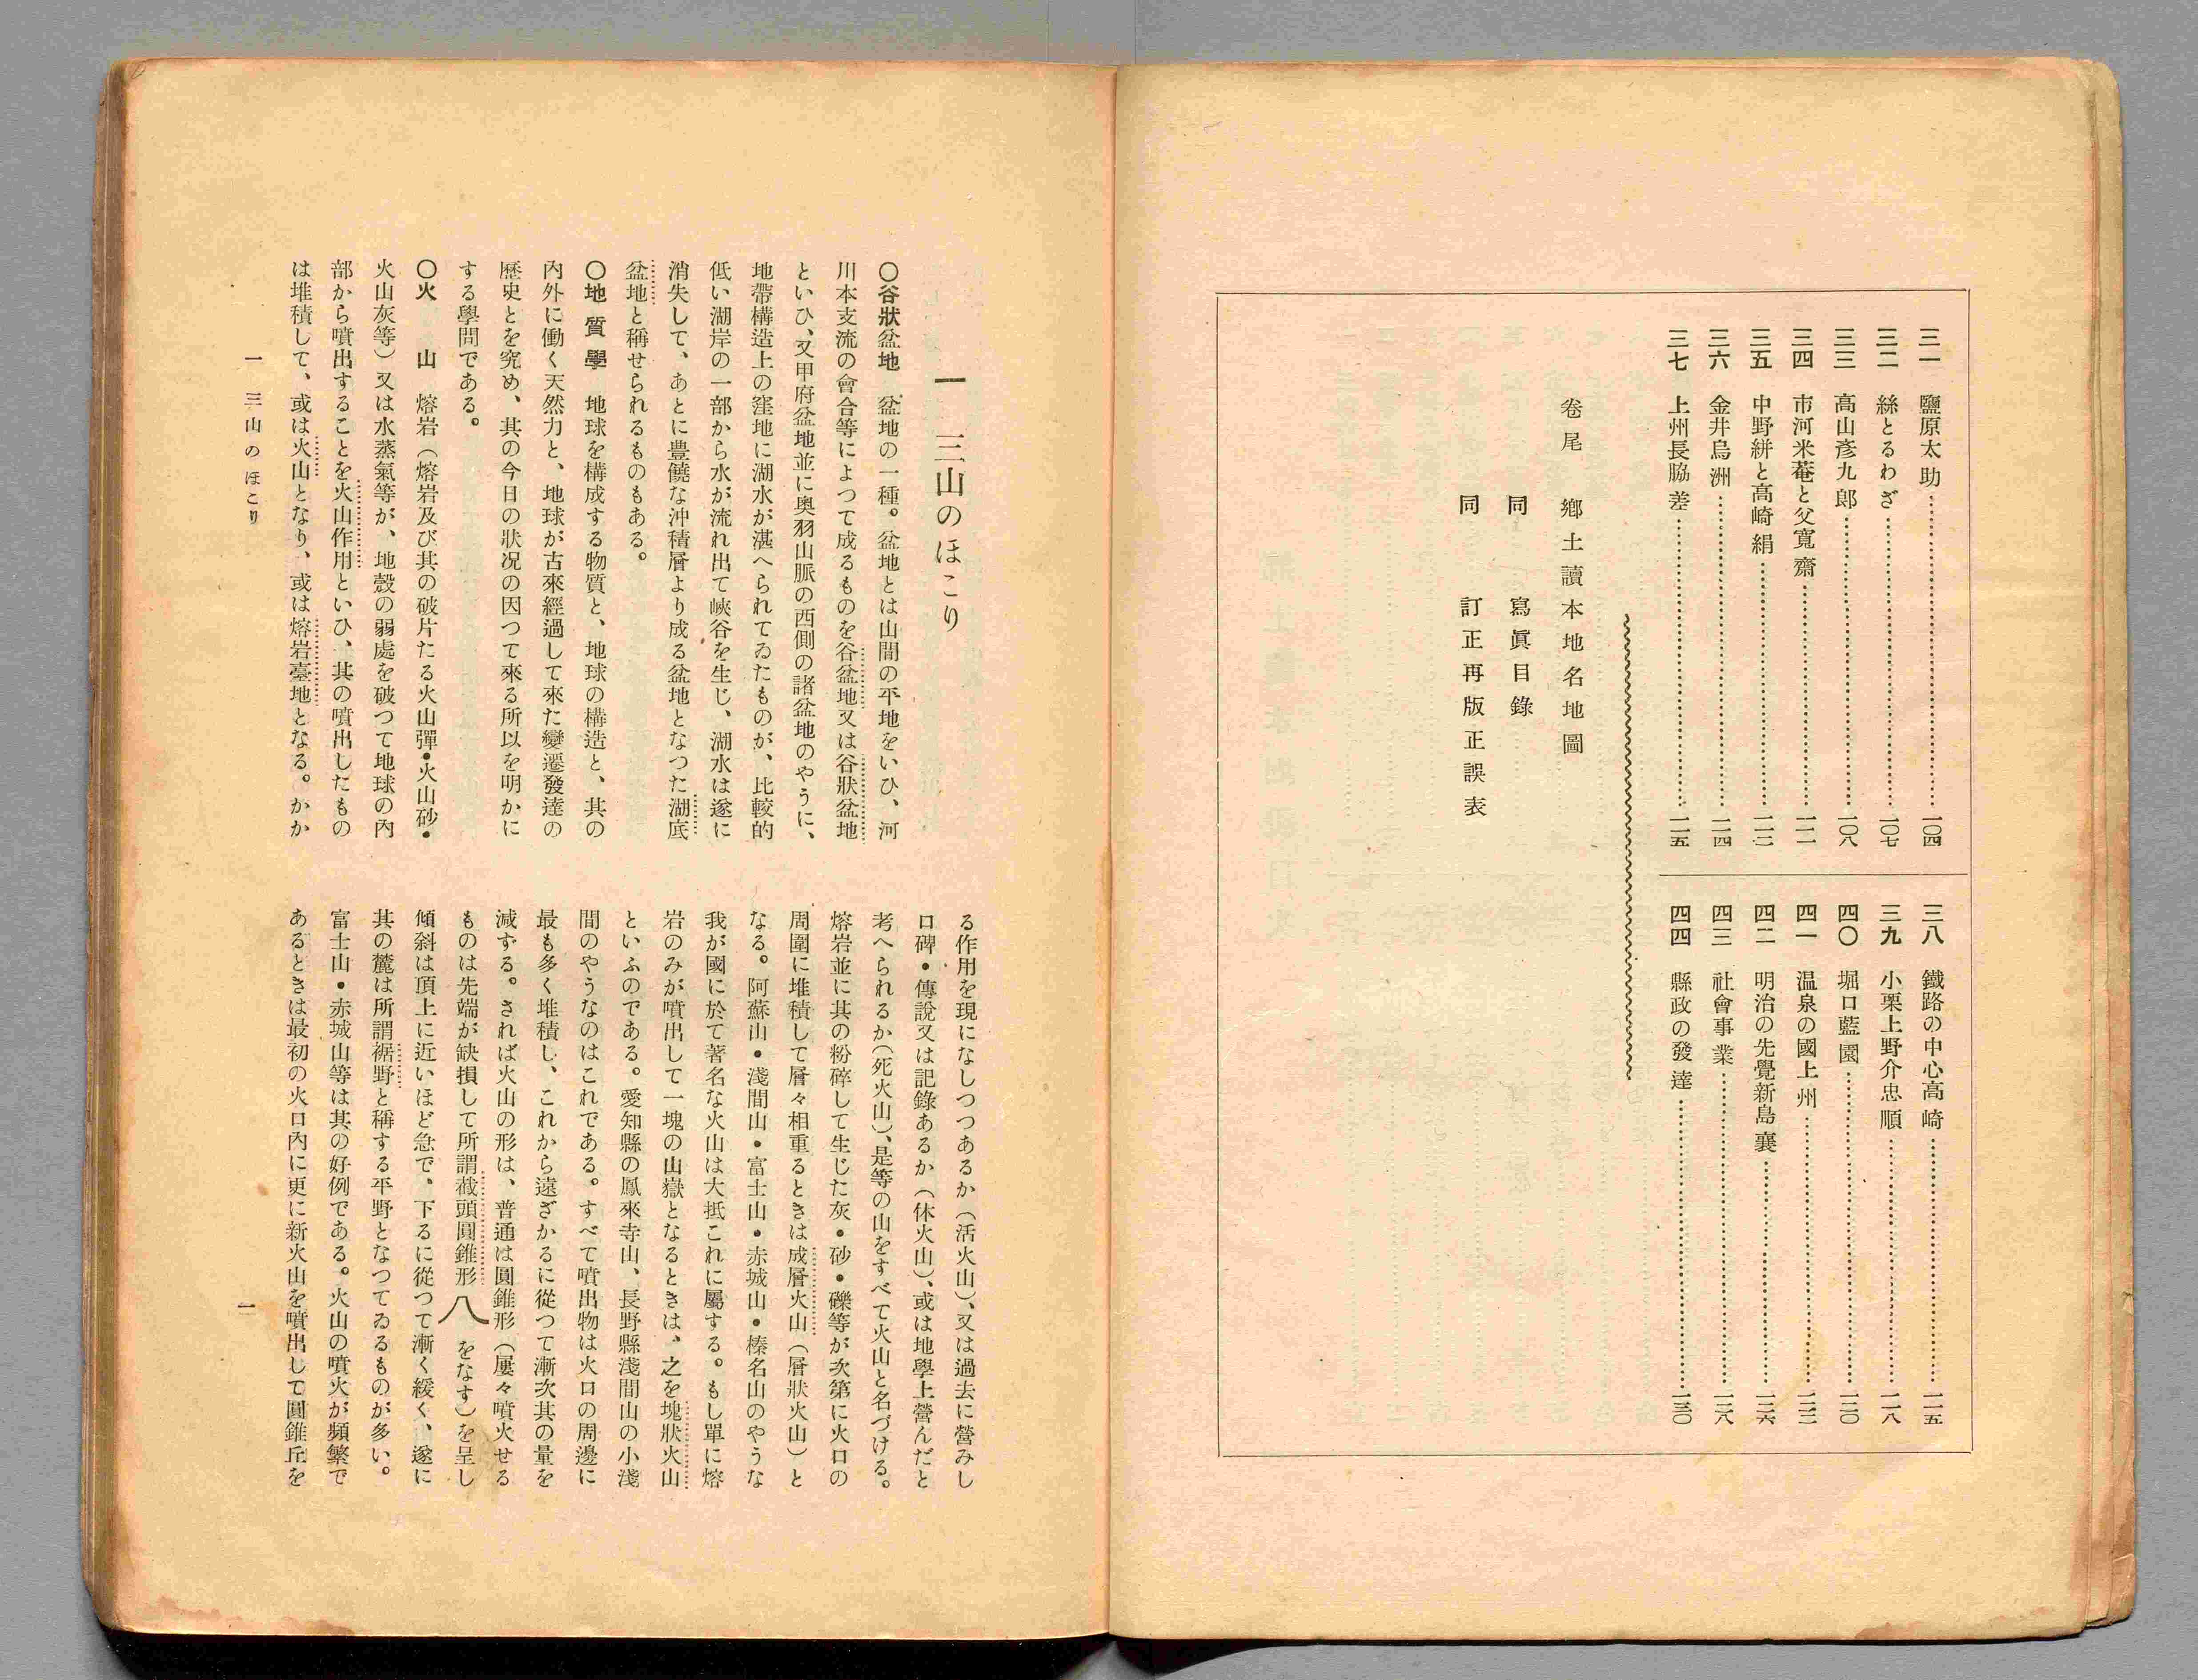 三一 鹽原太助……一〇四
三二 絲とるわざ……一〇七
三三 高山彥九郎……一〇八
三四 市河米菴と父寬齋……一一一
三五 中野絣と高崎絹……一一三
三六 金井烏洲……一一四
三七 上州長脇差……一一五
三八 鐵路の中心高崎……一一五
三九 小栗上野介忠順……一一八
四〇 堀口藍園……一二〇
四一 温泉の國上州……一二三
四二 明治の先覺新島襄……一二六
四三 社會事業……一二八
四四 縣政の發達……一三〇
卷尾 鄕土讀本地名地圖
同 寫眞目錄
同 訂正再版正誤表
一 三山のほこり
〇谷狀盆地 盆地の一種。盆地とは山間の平地をいひ、河
川本支流の會合等によつて成るものを谷盆地又は谷狀盆地
といひ、又甲府盆地並に奧羽山脈の西側の諸盆地のやうに、
地帶構造上の窪地に湖水が湛へられてゐたものが、比較的
低い湖岸の一部から水が流れ出て峽谷を生じ、湖水は遂に
消失して、あとに豊饒な沖積層より成る盆地となつた湖底
盆地と稱せられるものもある。
〇地質學 地球を構成する物質と、地球の構造と、其の
內外に働く天然力と、地球が古來經過して來た變遷發達の
歷史とを究め、其の今日の狀況の因つて來る所以を明かに
する學問である。
〇火山 熔岩（熔岩及び其の破片たる火山彈・火山砂・
火山灰等）又は水蒸氣等が、地殼の弱處を破つて地球の內
部から噴出することを火山作用といひ、其の噴出したもの
は堆積して、或は火山となり、或は熔岩臺地となる。かか
る作用を現になしつつあるか（活火山）、又は過去に營みし
口碑・傳說又は記錄あるか（休火山）、或は地學上營んだと
考へられるか（死火山）、是等の山をすべて火山と名づける。
熔岩並に其の粉碎して生じた灰・砂・礫等が次第に火口の
周圍に堆積して層々相重るときは成層火山（層狀火山）と
なる。阿蘇山・淺間山・富士山・赤城山・榛名山のやうな
我が國に於て著名な火山は大抵これに屬する。もし單に熔
岩のみが噴出して一塊の山嶽となるときは、之を塊狀火山
といふのである。愛知縣の鳳來寺山、長野縣淺間山の小淺
間のやうなのはこれである。すべて噴出物は火口の周邊に
最も多く堆積し、これから遠ざかるに從つて漸次其の量を
減ずる。されば火山の形は、普通は圓錐形（屢々噴火せる
ものは先端が缺損して所謂截頭圓錐形をなす）を呈し
傾斜は頂上に近いほど急で、下るに從つて漸く緩く、遂に
其の麓は所謂裾野と稱する平野となつてゐるものが多い。
富士山・赤城山等は其の好例である。火山の噴火が頻繁で
あるときは最初の火口內に更に新火山を噴出して圓錐丘を
一 三山のほこり
一